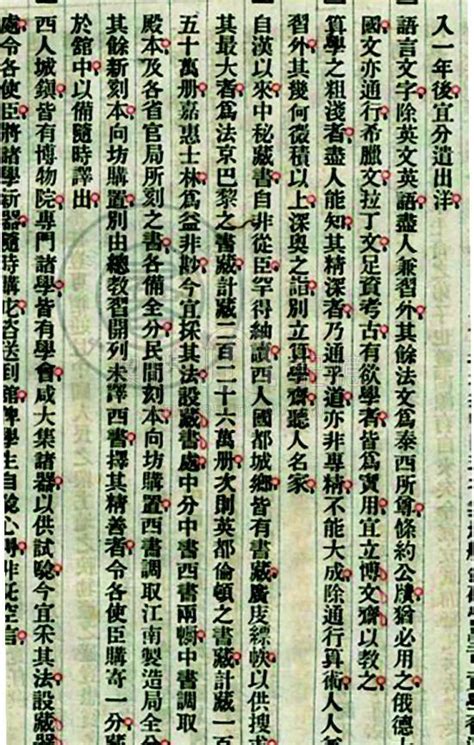 入一年後宜分遣出洋
一語言文字除英文英語盡人兼習外其餘法文爲泰西所尊條約公牘猶必用之俄德
國文亦通行希臘文拉丁文足資考古有欲學者皆爲實用宜立博文齋以教之
一算學之粗淺者盡人能知其精深者乃通乎道亦非專精不能大成除通行算術人人
習外其幾何微積以上深奥之詣別立算學齋聽人名家
一自漢以來中秘藏書自非從臣罕得紬讀西人國都城鄉皆有書藏廣庋縹帙以供搜求
其最大者爲法京巴黎之書藏計藏二百二十六萬册次則英都倫頓之書藏計藏一百
五十萬册嘉惠士林爲益非尠今宜採其法設藏書處中分中書西書兩櫥中書調取
殿本及各省官局所刻之書各備全分民間刻本向坊購置西書調取江南製造局全分
其餘新刻本向坊購置別由總教習開列未譯西書擇其精善者令各使臣購寄一分藏
於舘中以備隨時譯出
一西人城鎮皆有博物院專門諸學皆有學會咸大集諸器以供試驗今宜采其法設藏器
處令各使臣將諸學新器隨時購寄送到舘俾學生自騐心得非託空言